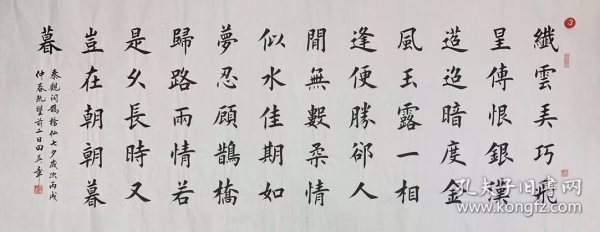 3
纖雲弄巧飛
星傳恨銀漢
迢迢暗度金
風玉露一相
逢便勝卻人
間無數柔情
似水佳期如
夢忍顧鵲橋
歸路兩情若
是久長時又
豈在朝朝暮
暮
秦觀詞鵲橋仙七夕歲次丙戌
仲春既望前二日田英章
孔夫子旧书网
www.kongfz.com